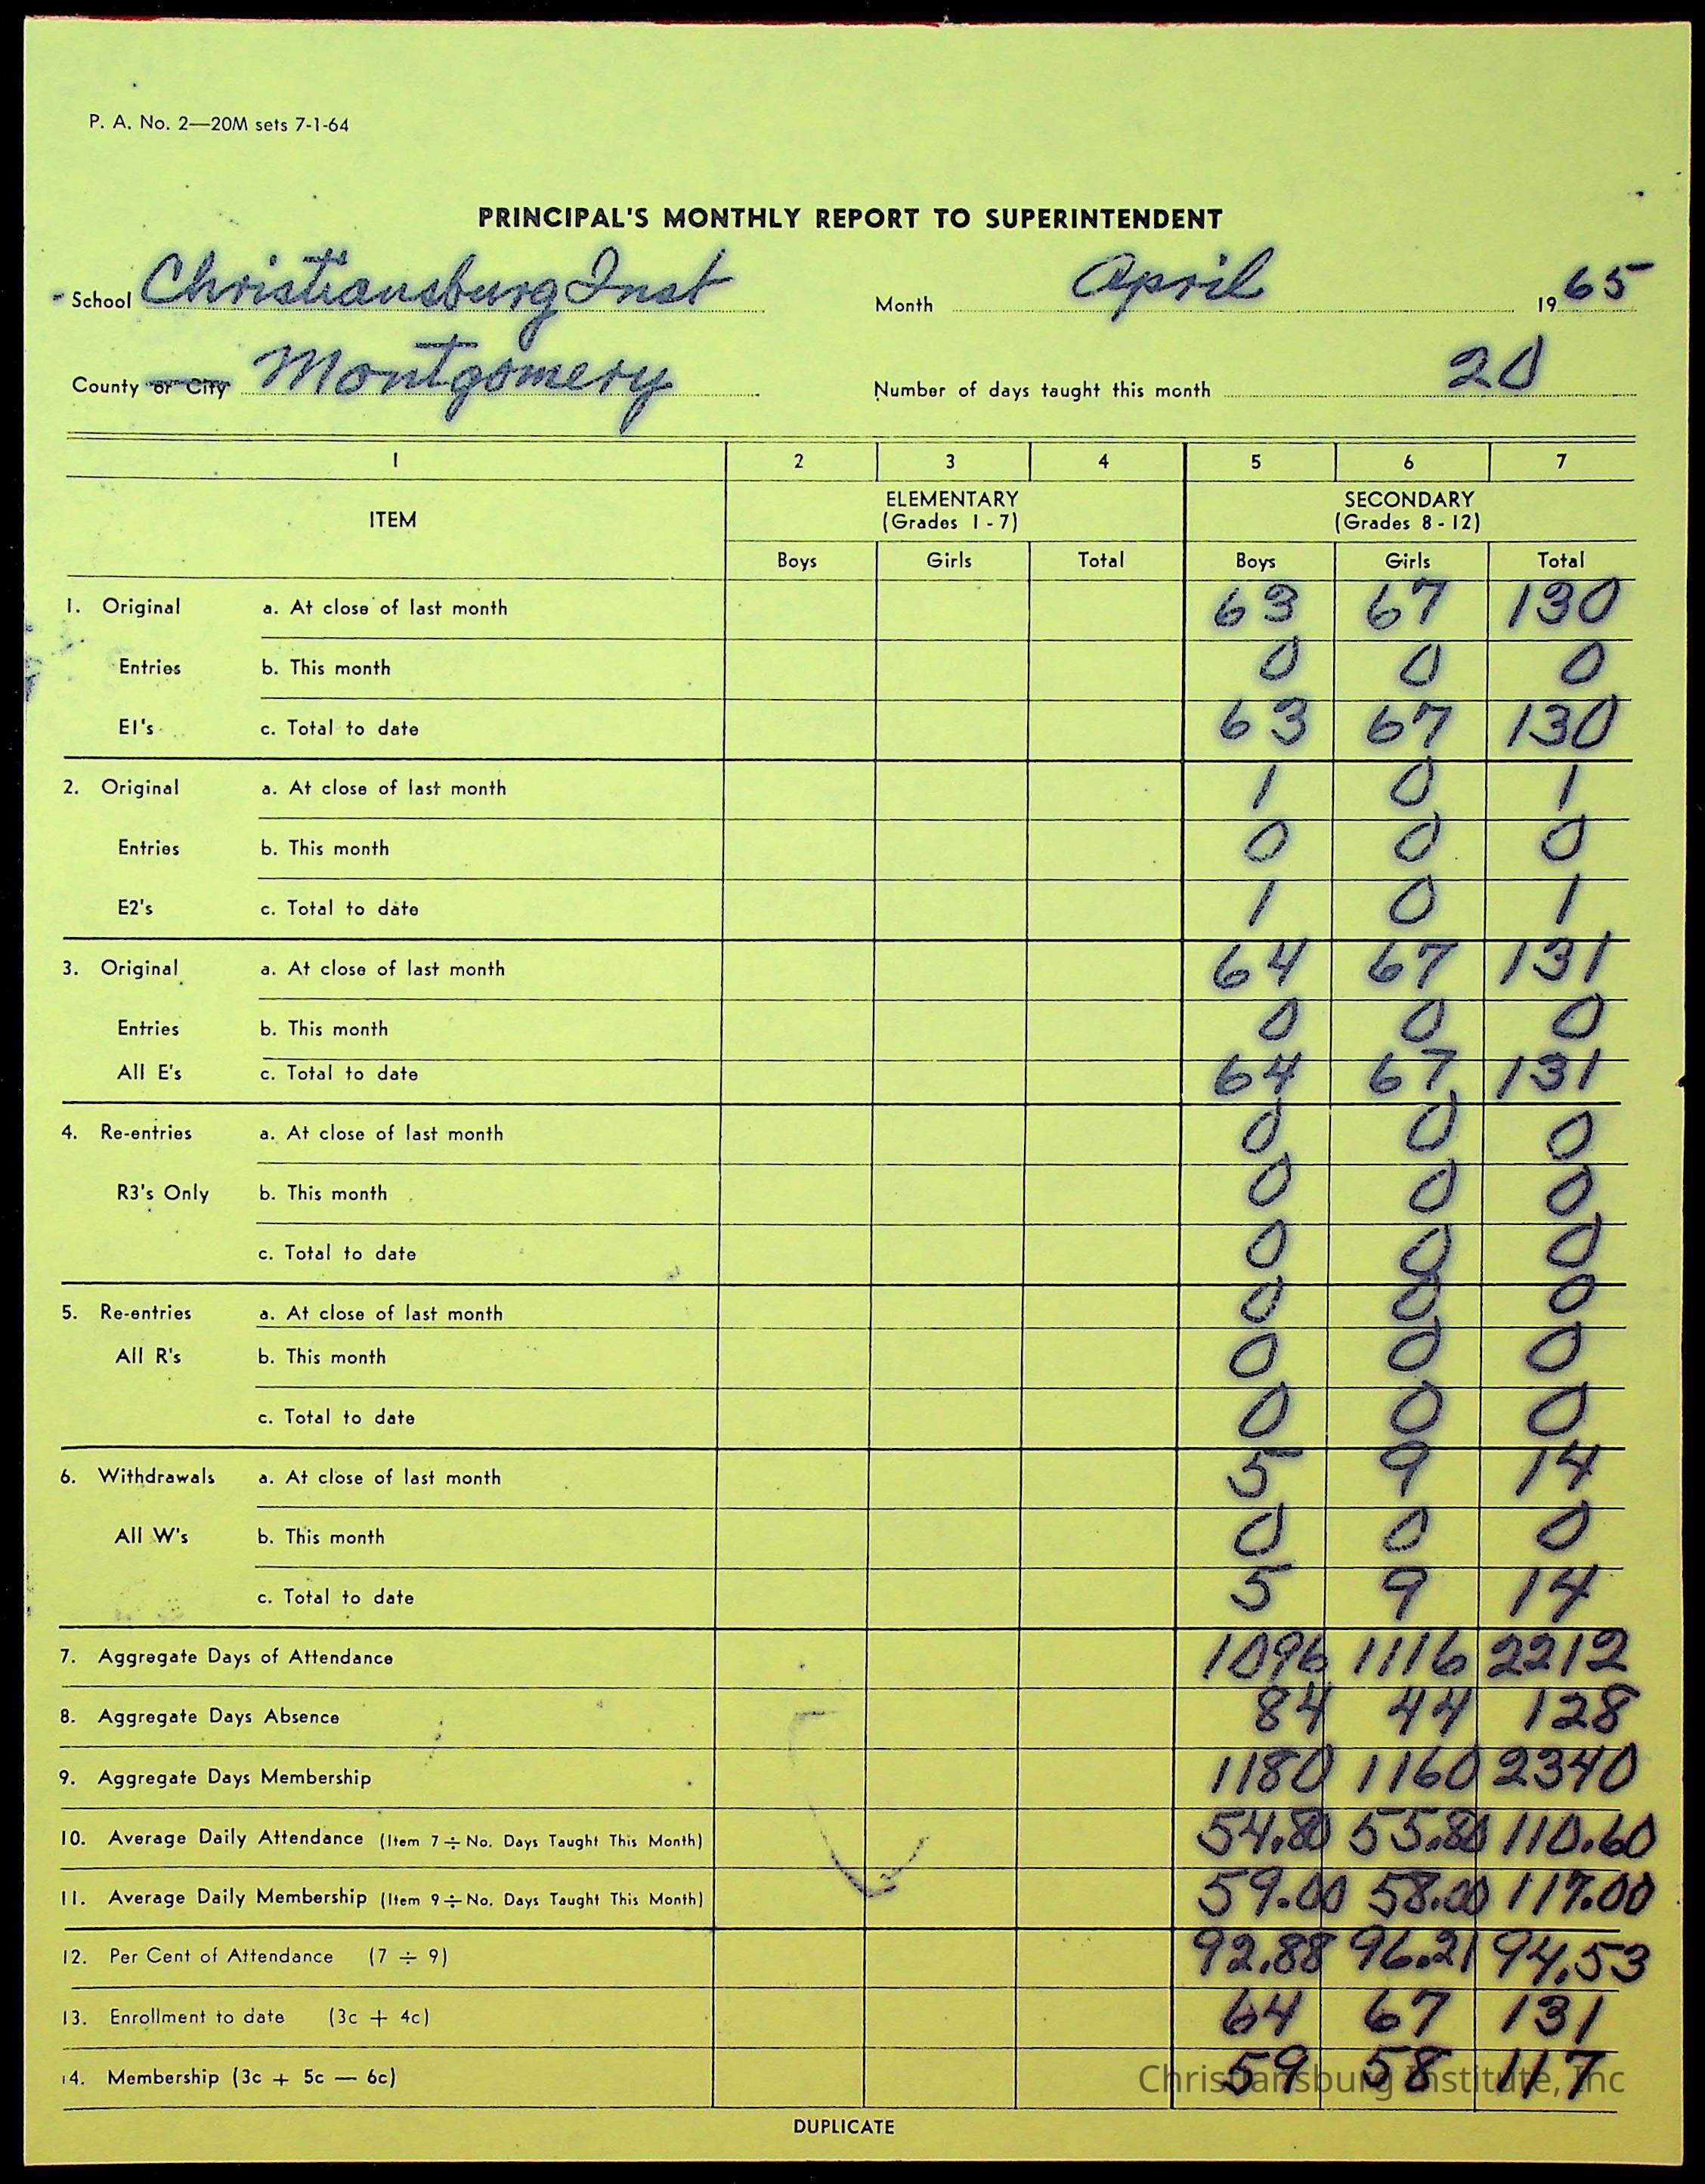 P. A. No. 2—20M sets 7-1-64
PRINCIPAL'S MONTHLY REPORT TO SUPERINTENDENT
School Christiansburg Inst Month April 1965
County or City Montgomery Number of days taught this month 20
1 2 3 4 5 6 7
ITEM ELEMENTARY (Grades 1 - 7) SECONDARY (Grades 8 - 12)
Boys Girls Total Boys Girls Total
1. Original a. At close of last month 63 67 130
Entries b. This month 0 0 0
E1's c. Total to date 63 67 130
2. Original a. At close of last month 1 0 1
Entries b. This month 0 0 0
E2's c. Total to date 1 0 1
3. Original a. At close of last month 64 67 131
Entries b. This month 0 0 0
All E's c. Total to date 64 67 131
4. Re-entries a. At close of last month 0 0 0
R3's Only b. This month 0 0 0
c. Total to date 0 0 0
5. Re-entries a. At close of last month 0 0 0
All R's b. This month 0 0 0
c. Total to date 0 0 0
6. Withdrawals a. At close of last month 5 9 14
All W's b. This month 0 0 0
c. Total to date 5 9 14
7. Aggregate Days of Attendance 1096 1116 2212
8. Aggregate Days Absence 84 44 128
9. Aggregate Days Membership 1180 1160 2340
10. Average Daily Attendance (Item 7 ÷ No. Days Taught This Month) 54.80 55.80 110.60
11. Average Daily Membership (Item 9 ÷ No. Days Taught This Month) 59.00 58.00 117.00
12. Per Cent of Attendance (7 ÷ 9) 92.88 96.21 94.53
13. Enrollment to date (3c + 4c) 64 67 131
14. Membership (3c + 5c — 6c) 59 58 117
Christiansburg Institute, Inc
DUPLICATE